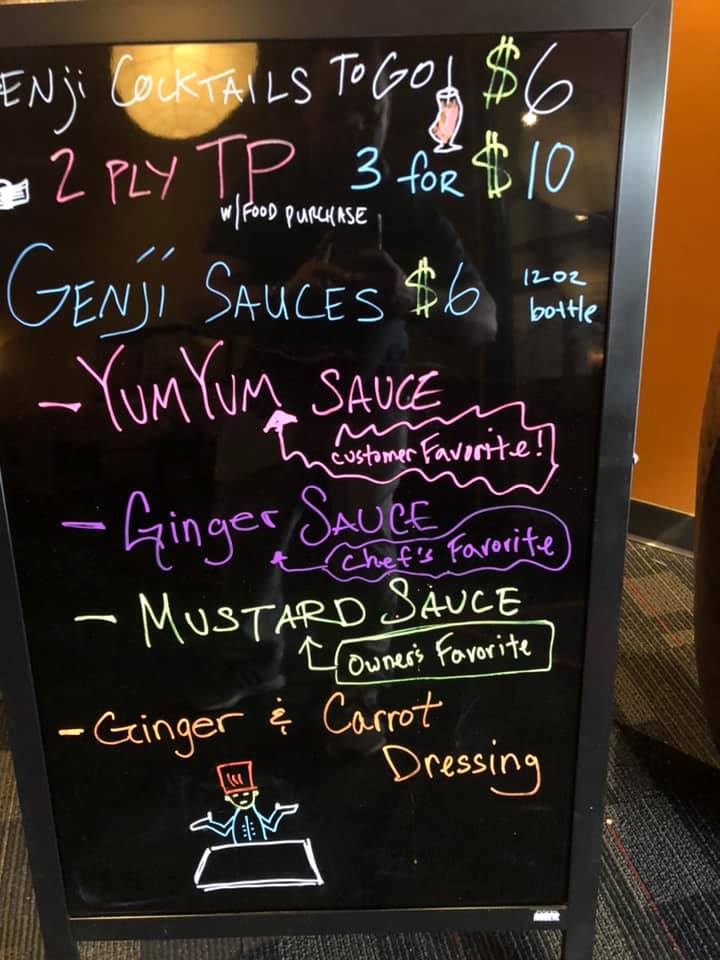 ENji COCKTAILS TO GO! $6
2 PLY TP 3 for $10
w/FOOD PURCHASE
GENJI SAUCES $6 12 oz bottle
- YUMYUM SAUCE
customer Favorite!
- Ginger SAUCE
chef's Favorite
- MUSTARD SAUCE
Owner's Favorite
- Ginger & Carrot
Dressing